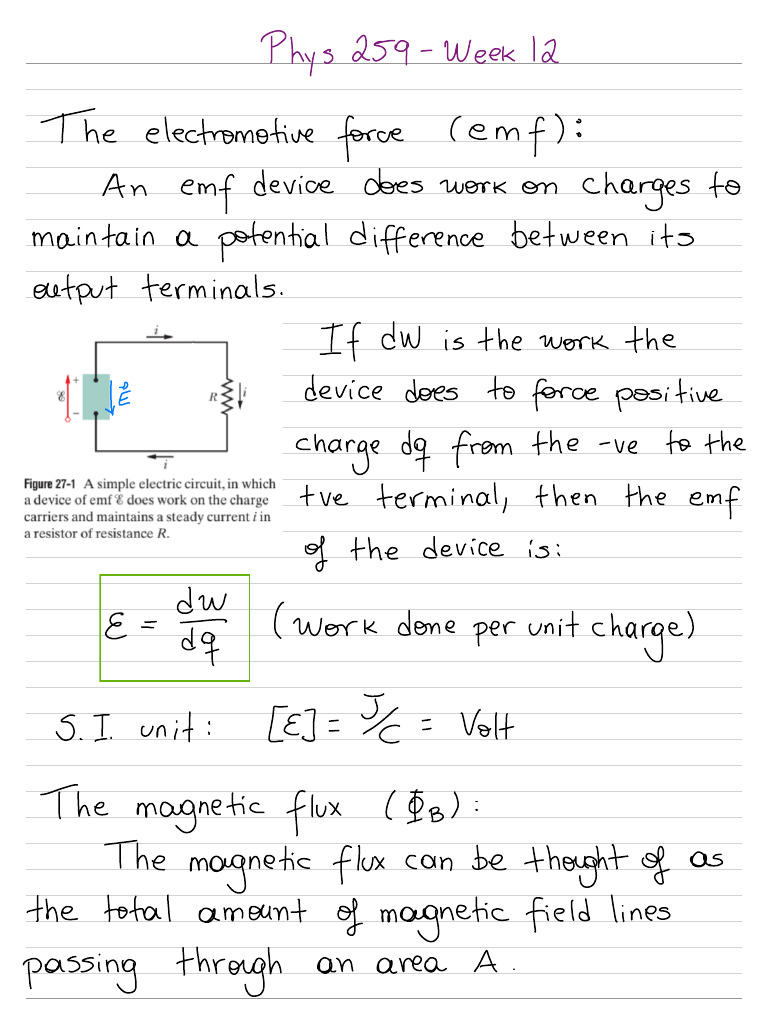 Phys 259 - Week 12
The electromotive force (emf):
An emf device does work on charges to
maintain a potential difference between its
output terminals.
i
+
ℰ
-
E⃗
R
i
i
Figure 27-1 A simple electric circuit, in which
a device of emf ℰ does work on the charge
carriers and maintains a steady current i in
a resistor of resistance R.
If dW is the work the
device does to force positive
charge dq from the -ve to the
+ve terminal, then the emf
of the device is:
ℰ = dW/dq (Work done per unit charge)
S.I. unit: [ℰ] = J/C = Volt
The magnetic flux (Φ_B):
The magnetic flux can be thought of as
the total amount of magnetic field lines
passing through an area A.